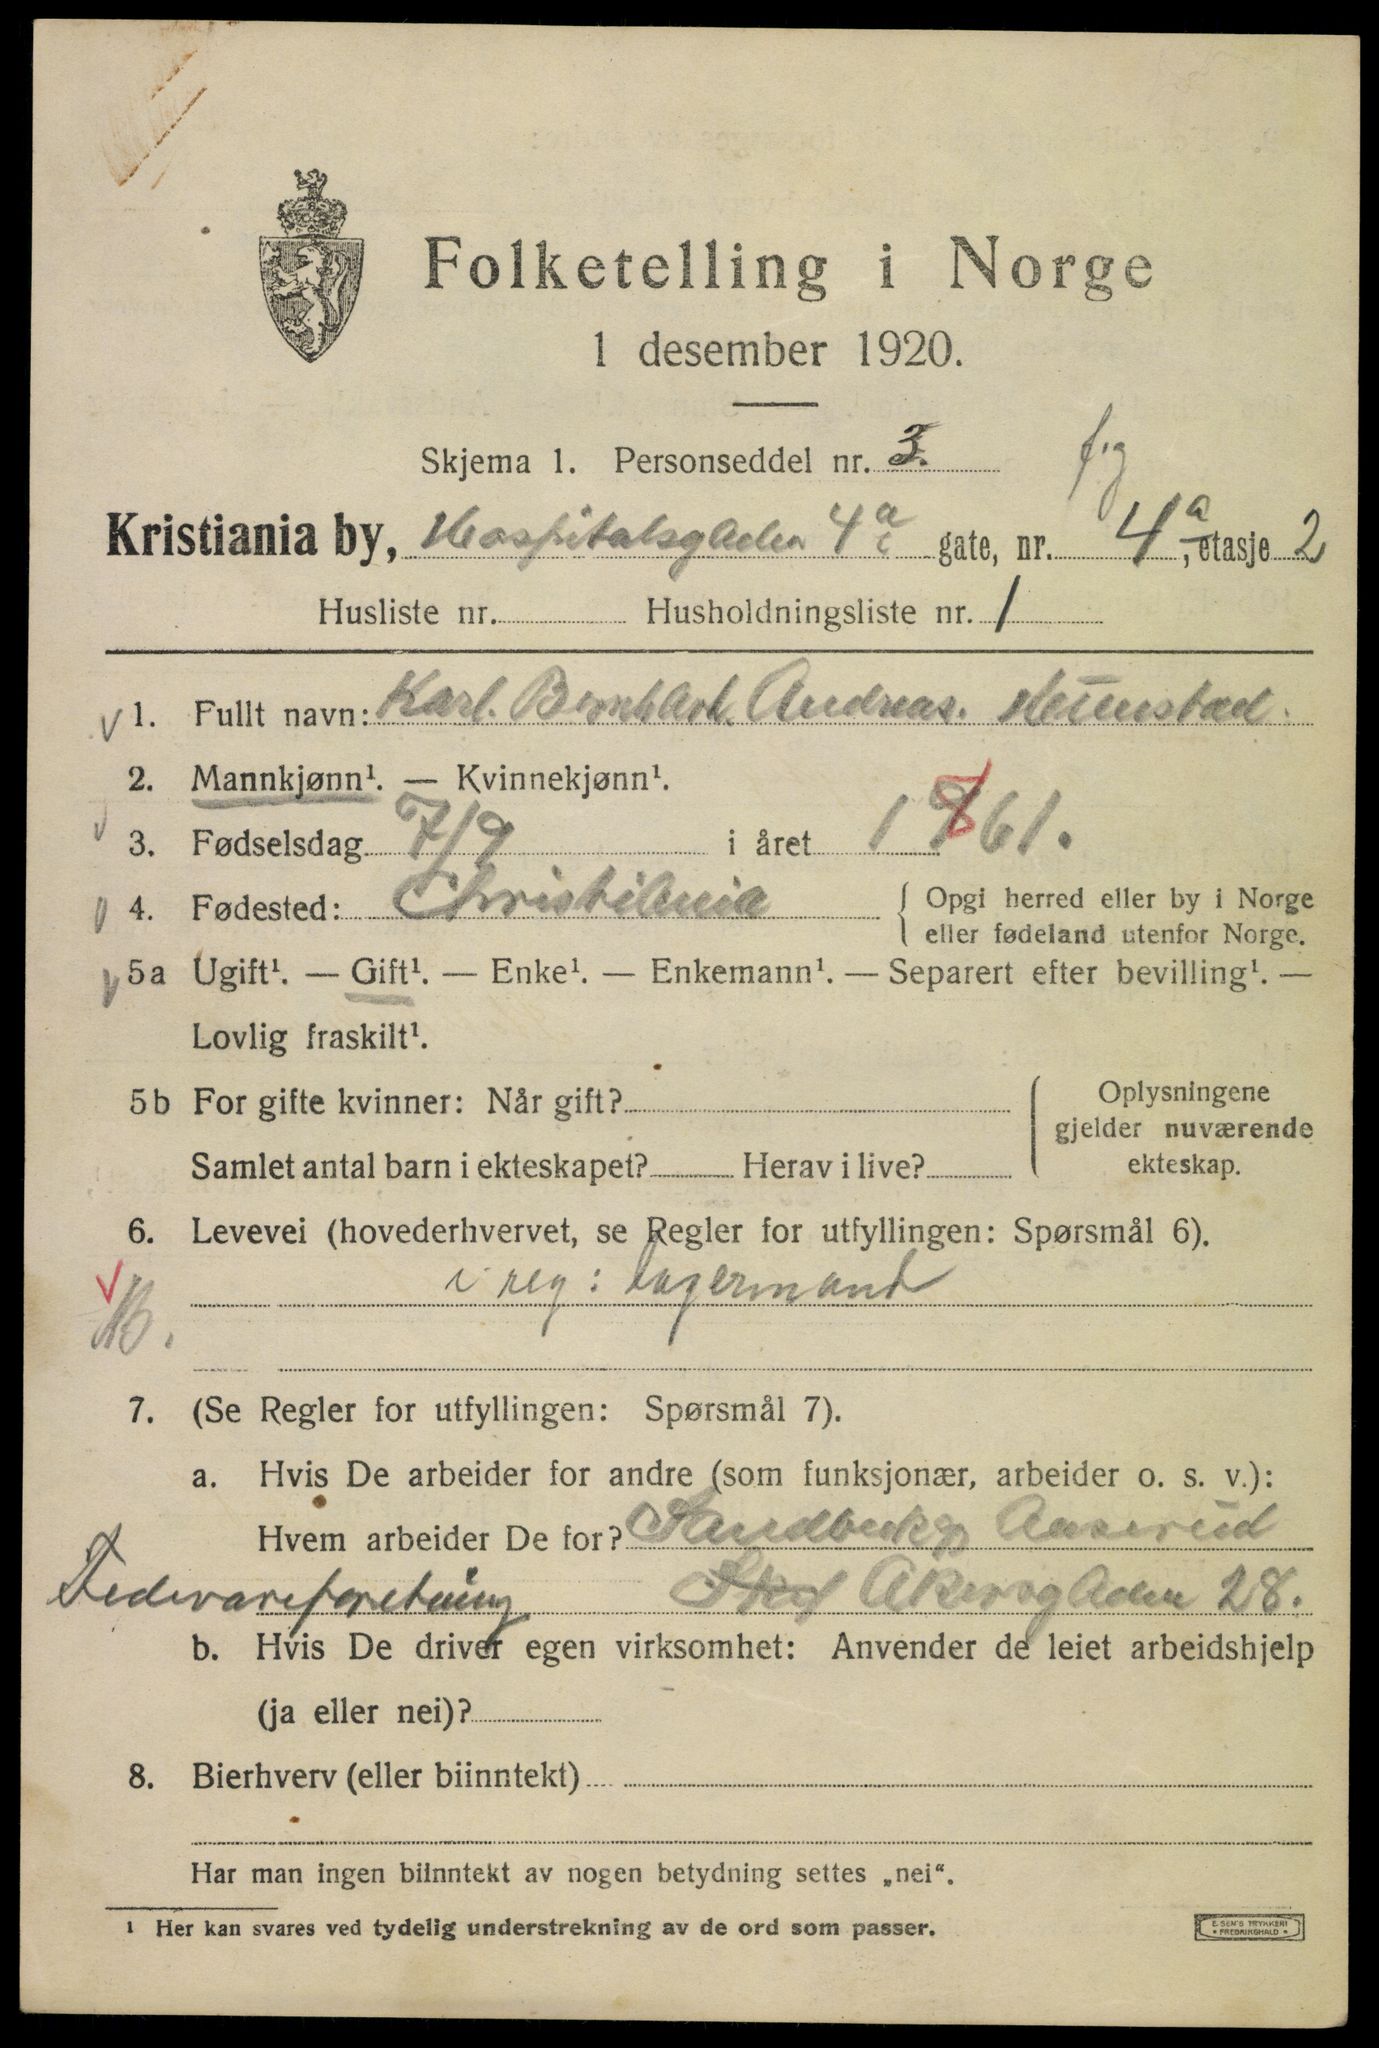 Folketelling i Norge
1 desember 1920.
Skjema 1. Personseddel nr. 3.
Kristiania by, Hospitalsgaden 4a gate, nr. 4a, etasje 2
Husliste nr. Husholdningsliste nr. 1
1. Fullt navn: Karl. Bernhard. Andreas.
2. Mannkjønn¹. — Kvinnekjønn¹.
3. Fødselsdag 7/9 i året 1861.
4. Fødested: Christiania { Opgi herred eller by i Norge
eller fødeland utenfor Norge.
5a Ugift¹. — Gift¹. — Enke¹. — Enkemann¹. — Separert efter bevilling¹. —
Lovlig fraskilt¹.
5b For gifte kvinner: Når gift? { Oplysningene
gjelder nuværende
Samlet antal barn i ekteskapet? Herav i live? ekteskap.
6. Levevei (hovederhvervet, se Regler for utfyllingen: Spørsmål 6).
i reg: Lagermand
7. (Se Regler for utfyllingen: Spørsmål 7).
a. Hvis De arbeider for andre (som funksjonær, arbeider o. s. v.):
Hvem arbeider De for? Aaserud
Fedevareforetning Akersgaden 28.
b. Hvis De driver egen virksomhet: Anvender de leiet arbeidshjelp
(ja eller nei)?
8. Bierhverv (eller biinntekt)
Har man ingen biinntekt av nogen betydning settes „nei“.
¹ Her kan svares ved tydelig understrekning av de ord som passer.
E. SEM'S TRYKKERI
* FREDRIKSHALD *